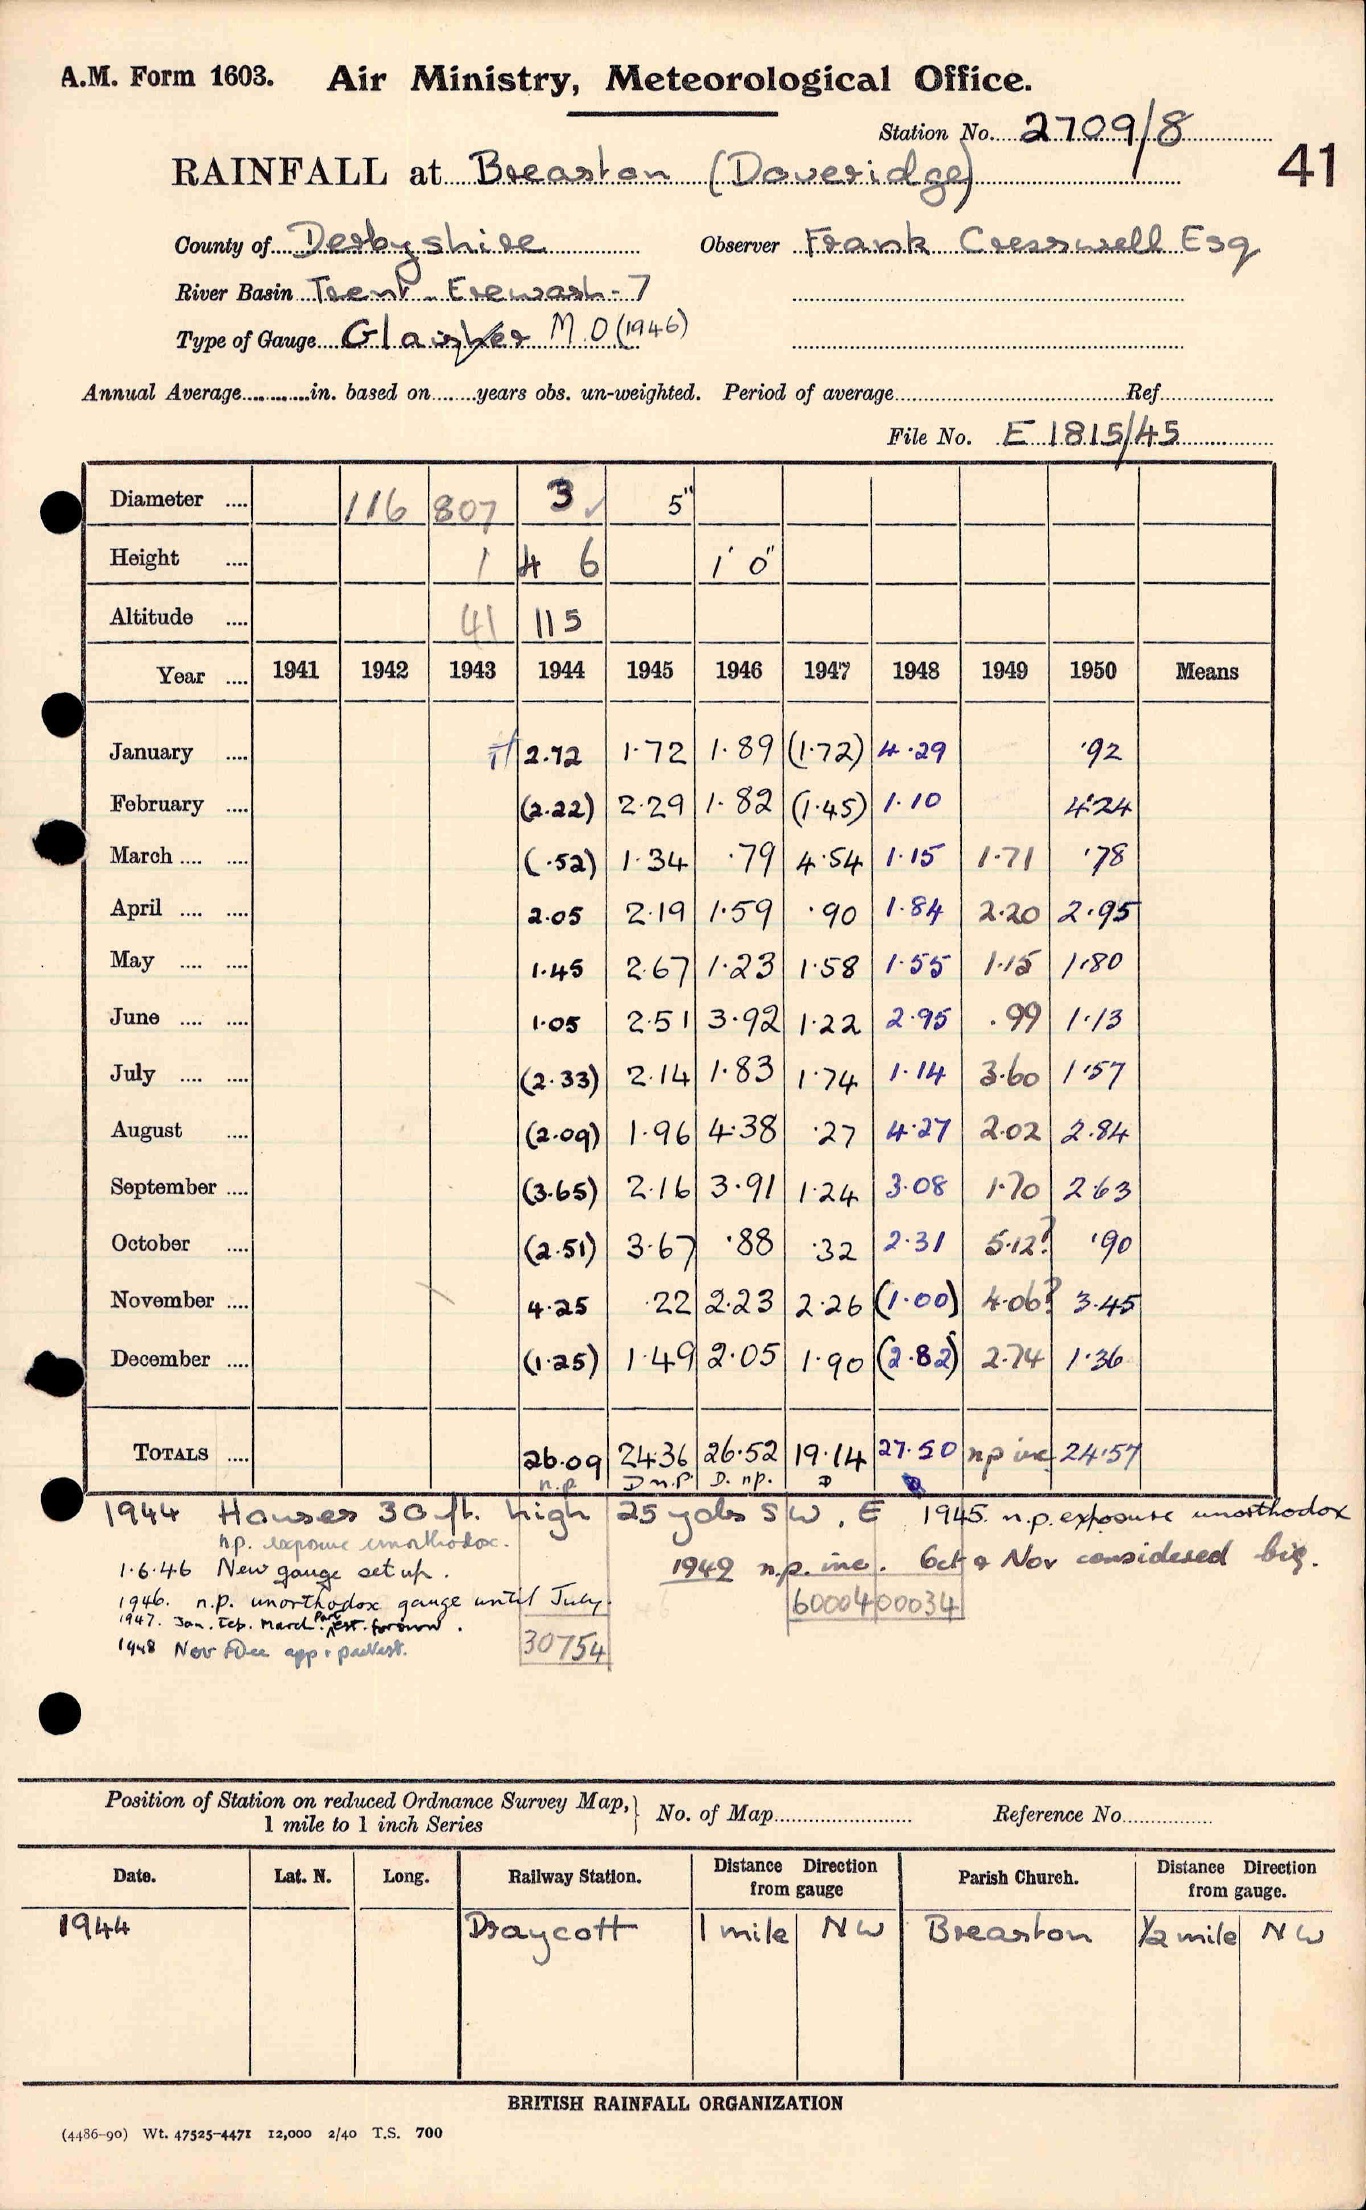 A.M. Form 1603. Air Ministry, Meteorological Office.
Station No. 2709/8
41
RAINFALL at Breaston (Doveridge)
County of Derbyshire Observer Frank Cresswell Esq
River Basin Trent - Erewash - 7
Type of Gauge Glaisher M.O (1946)
Annual Average in. based on years obs. un-weighted. Period of average Ref
File No. E 1815/45
Diameter 116 807 3 ✓ 5"
Height 1 4 6 1' 0"
Altitude 41 115
Year 1941 1942 1943 1944 1945 1946 1947 1948 1949 1950 Means
January 2.72 1.72 1.89 (1.72) 4.29 .92
February (2.22) 2.29 1.82 (1.45) 1.10 4.24
March (.52) 1.34 .79 4.54 1.15 1.71 .78
April 2.05 2.19 1.59 .90 1.84 2.20 2.95
May 1.45 2.67 1.23 1.58 1.55 1.15 1.80
June 1.05 2.51 3.92 1.22 2.95 .99 1.13
July (2.33) 2.14 1.83 1.74 1.14 3.60 1.57
August (2.09) 1.96 4.38 .27 4.27 2.02 2.84
September (3.65) 2.16 3.91 1.24 3.08 1.70 2.63
October (2.51) 3.67 .88 .32 2.31 5.12? .90
November 4.25 .22 2.23 2.26 (1.00) 4.06? 3.45
December (1.25) 1.49 2.05 1.90 (2.82) 2.74 1.36
TOTALS 26.09 24.36 26.52 19.14 27.50 np inc 24.57
n.p D n.p D. np. D D
1944 Houses 30 ft. high 25 yds SW, E 1945. n.p. exposure unorthodox
n.p. exposure unorthodox.
1949 n.p. inc. Oct & Nov considered big.
1.6.46 New gauge set up.
1946. n.p. unorthodox gauge until July.
60004 00034
1947. Jan. Feb. March Part est. for snow.
1948 Nov & Dec app. & part est.
30754
Position of Station on reduced Ordnance Survey Map, 1 mile to 1 inch Series No. of Map Reference No.
Date. Lat. N. Long. Railway Station. Distance Direction from gauge Parish Church. Distance Direction from gauge.
1944 Draycott 1 mile NW Breaston ½ mile NW
BRITISH RAINFALL ORGANIZATION
(4486-90) Wt. 47525-4471 12,000 2/40 T.S. 700